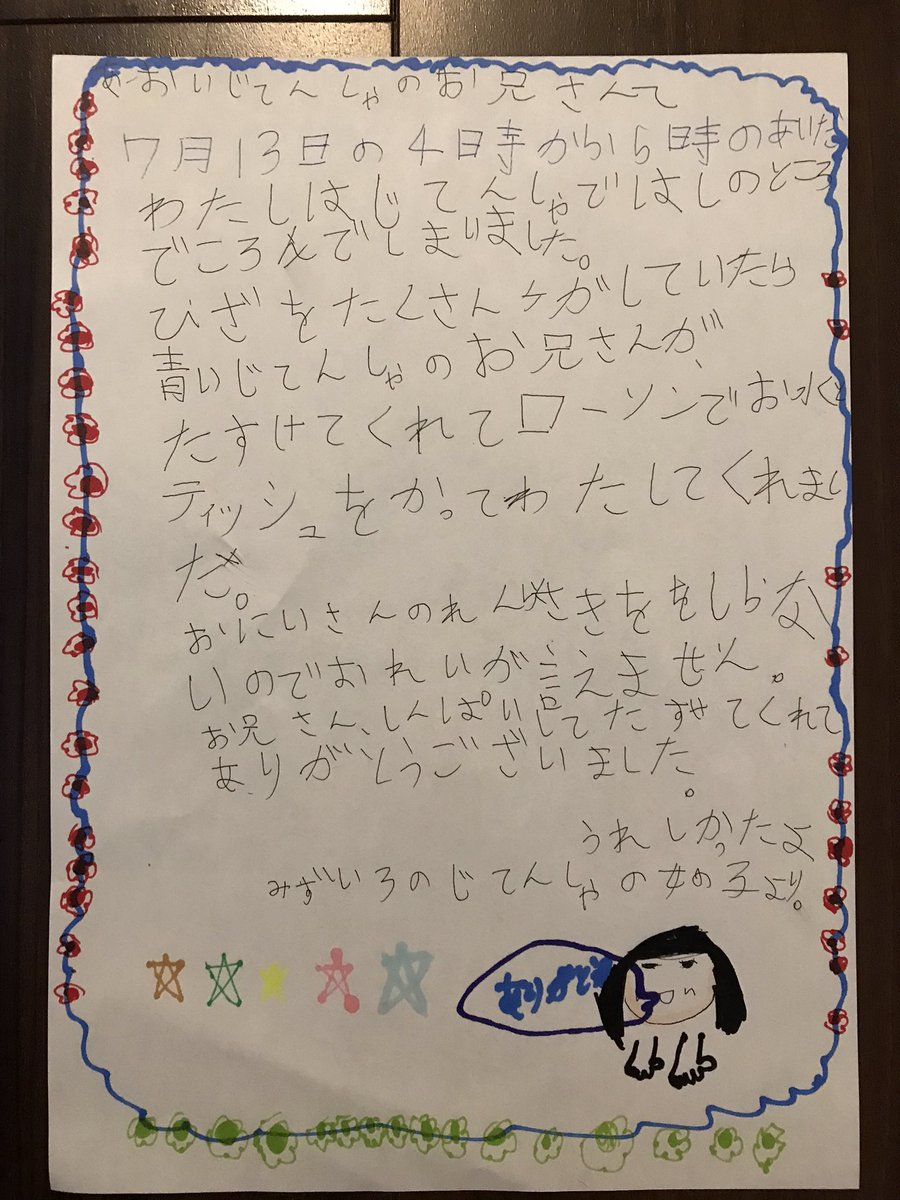 あおいじてんしゃのお兄さんて
7月13日の4日時からら時のあいだ
わたしはじてんしゃではしのところ
でころんでしまいました。
ひざをたくさんケがしていたら
青いじてんしゃのお兄さんが、
たすけてくれてローソンでお水と
ティッシュをかってわたしてくれまし
だ。
おにいさんのれんらくさきををしらな
いのでおれいが言えません。
お兄さん、しんぱいしてたすけてくれて
ありがとうございました。
うれしかったよ
みずいろのじてんしゃの女の子より。
ありがとう